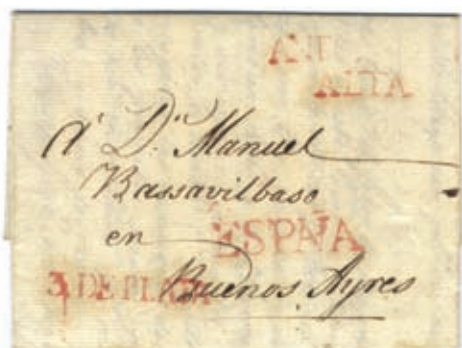 AND.
ALTA
A D.n Manuel
Bassavilbaso
en
ESPAÑA
3 DE PLATA
Buenos Ayres